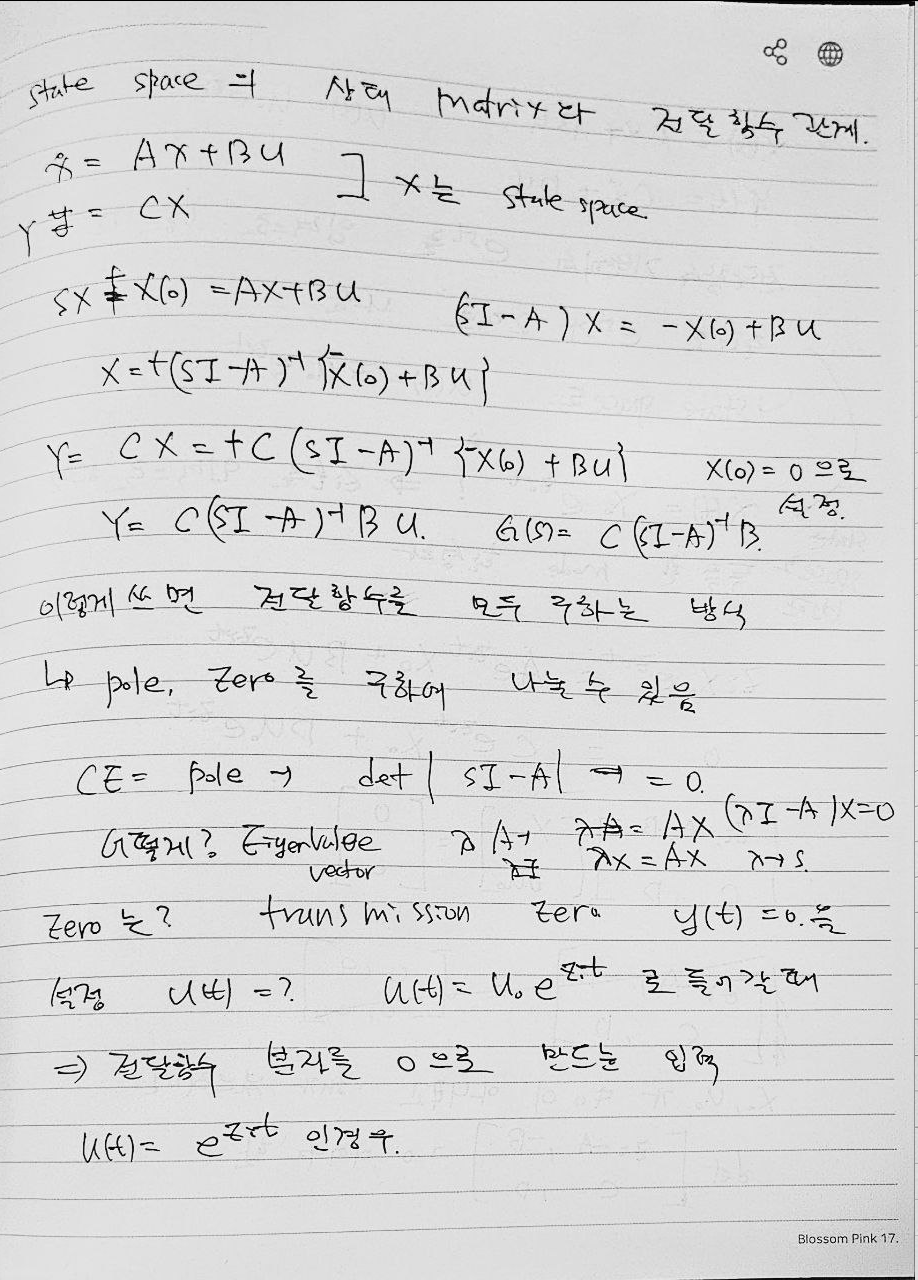 state space의 상태 matrix와 전달함수 관계.
ẋ = Ax + BU ] x는 state space
Y = CX
SX + X(0) = AX+BU (SI-A)X = -X(0)+BU
X=+(SI-A)⁻¹{-X(0)+BU}
Y= CX = +C(SI-A)⁻¹{-X(0)+BU} X(0)=0으로 설정.
Y= C(SI-A)⁻¹BU. G(S)= C(SI-A)⁻¹B.
이렇게 쓰면 전달함수를 모두 구하는 방식
↳ pole, Zero를 구하여 나눌 수 있음
CE= pole → det|SI-A| → =0.
어떻게? Eigenvalue vector λX=AX (λI-A)X=0 λ→S.
Zero는? transmission zero y(t)=0.을
설정 U(t)=? U(t)=U₀e^{Zit}로 들어갈 때
⇒ 전달함수 분자를 0으로 만드는 입력
U(t)= e^{Zit} 인경우.
Blossom Pink 17.